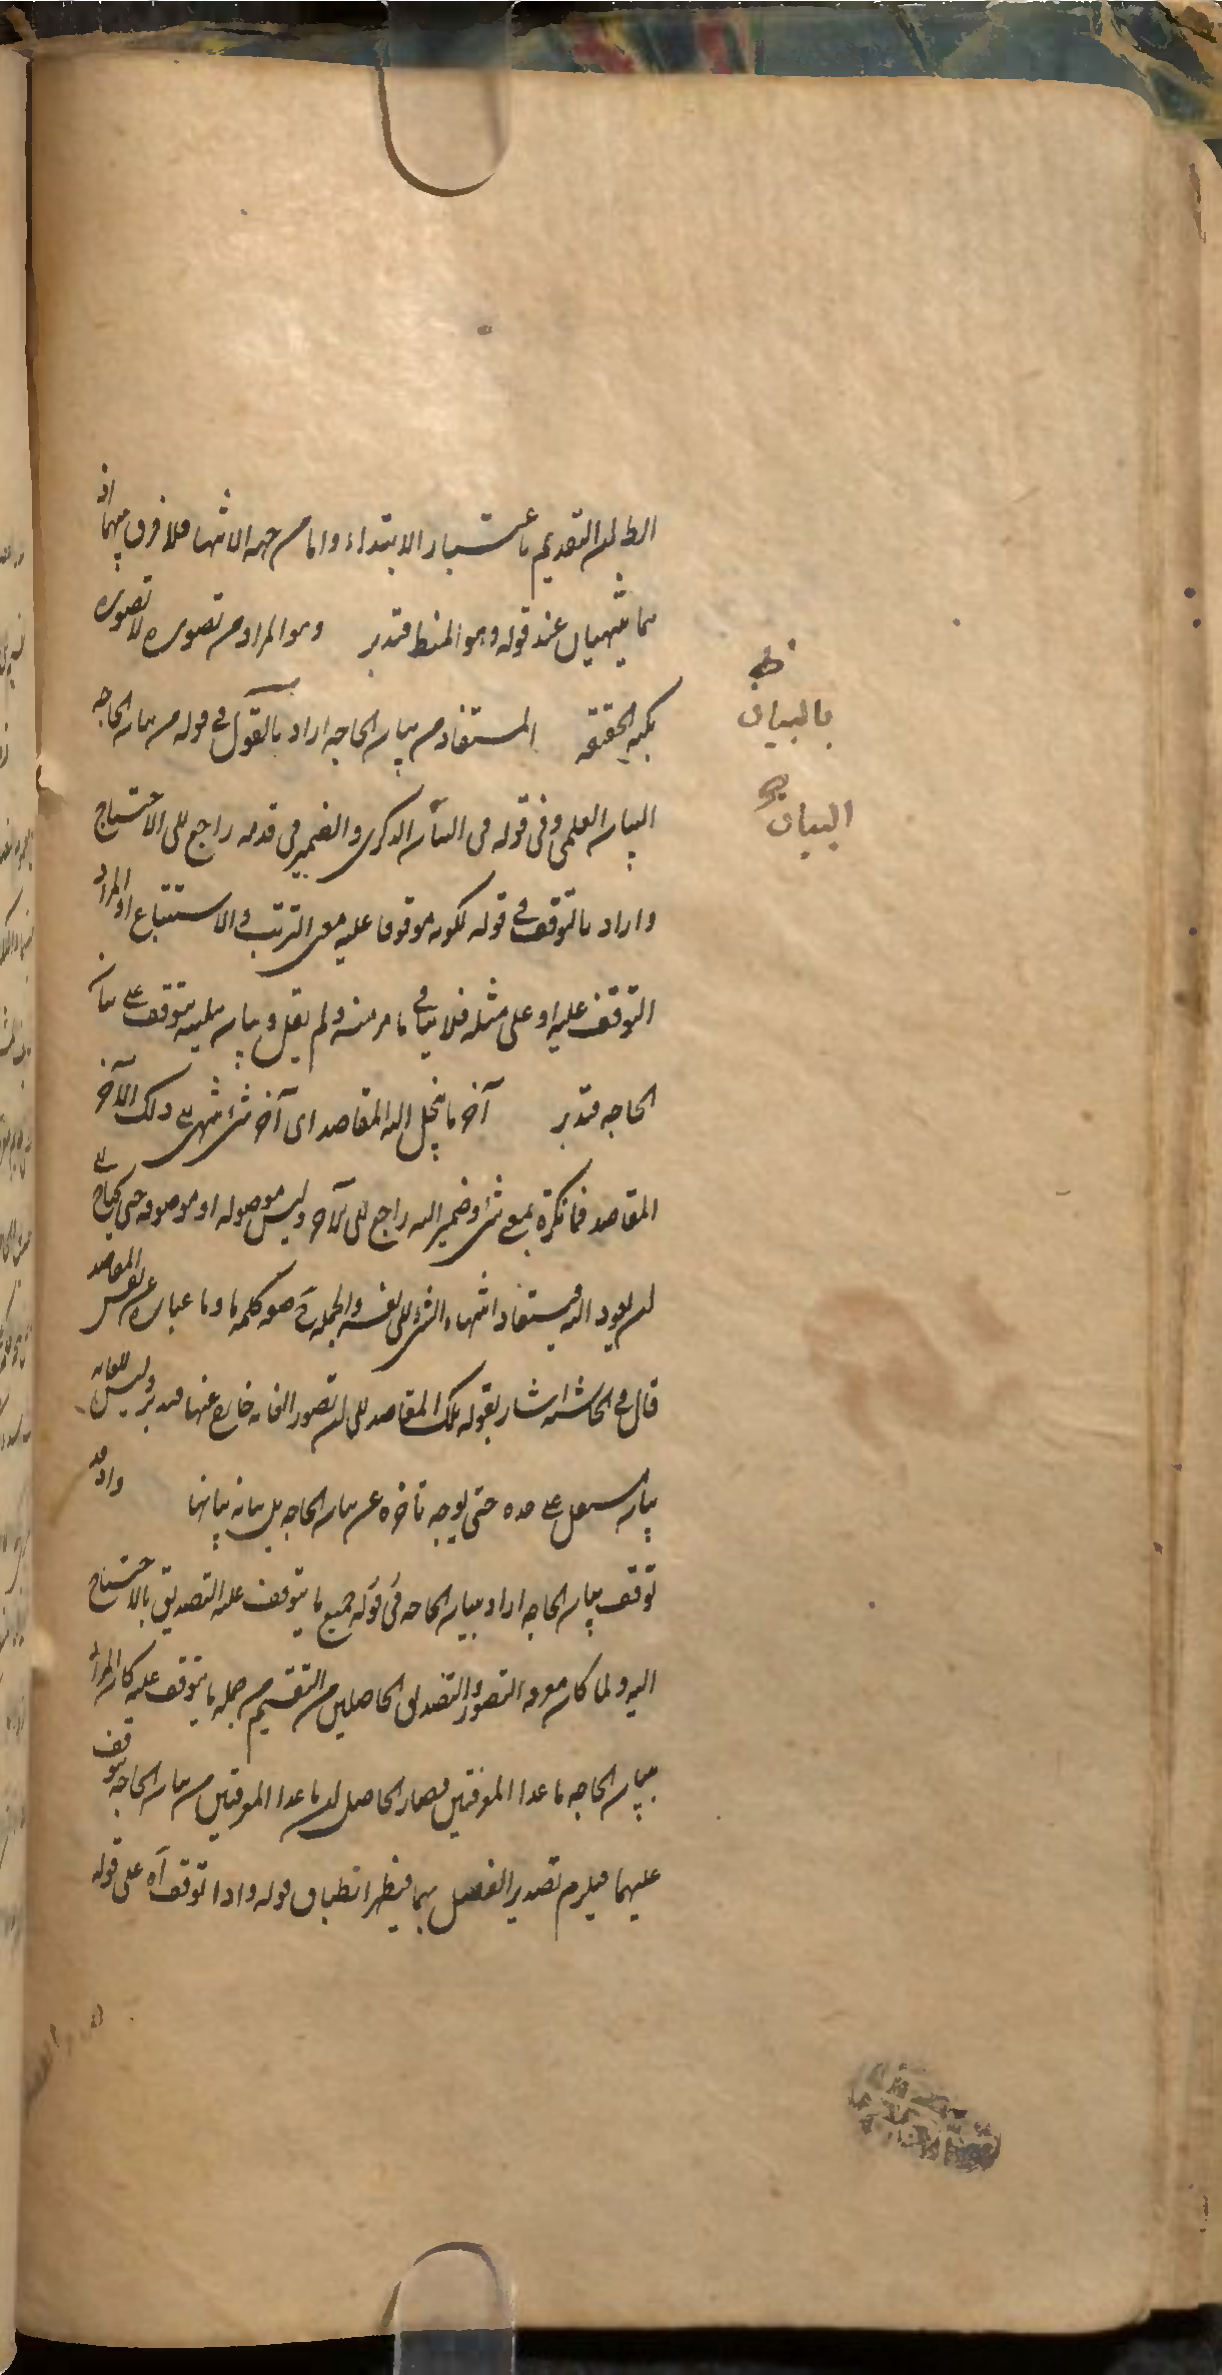 الط لان التقديم باعتبار الابتداء واما من جهة الانتهاء فلا فرق بينهما اذ
هما ينتهيان عند قوله وهو المنط فتدبر وهو المراد من تصوره لا تصوره
بكنهه الحقيقة المستفاد من بيان الحاجة اراد بالقول في قوله من بيان الحاجة
البيان العلمي وفي قوله في البيان الذكرى والضمير في قدمه راجع الى الاحتياج
واراد بالتوقف في قوله لكونه موقوفا عليه معنى الترتب والاستتباع او المراد
التوقف عليه او على مثله فلا ينافي ما مر منه ولم يقل وبيان يتوقف على بيان
الحاجة فتدبر آخر ما ينحل اليه المقاصد اى آخر شئ ينتهى الى ذلك الآخر
المقاصد فما نكرة بمعنى شئ وضمير اليه راجع الى الآخر وليس موصوله او موصوفه حتى يحتاج الى
ان يعود اليه فيستفاد انتهاء الشئ الى نفسه والجملة صفه كلمه ما وما عبارة عن نفس المقاصد
قال في الحاشيه اشار بقوله تلك المقاصد الى ان تصور الغاية خارج عنها فتدبر وليس للغاية
بيان مستقل على حده حتى يوجه تأخره عن بيان الحاجه بل بيانه بيانها واذ قد
توقف بيان الحاجه اراد ببيان الحاجه في قوله جميع ما يتوقف عليه التصديق بالاحتياج
اليه ولما كان معرفة التصور والتصديق الحاصلين من التقسيم من جملة ما يتوقف عليه كان المراد
ببيان الحاجه ما عدا المعرفتين فصار الحاصل ان ما عدا المعرفتين من بيان الحاجه يتوقف
عليهما فيلزم تصدير الفصل بهما فيظهر انطباق قوله واذا توقف آه على قوله
ظ
بالبيان
البيان